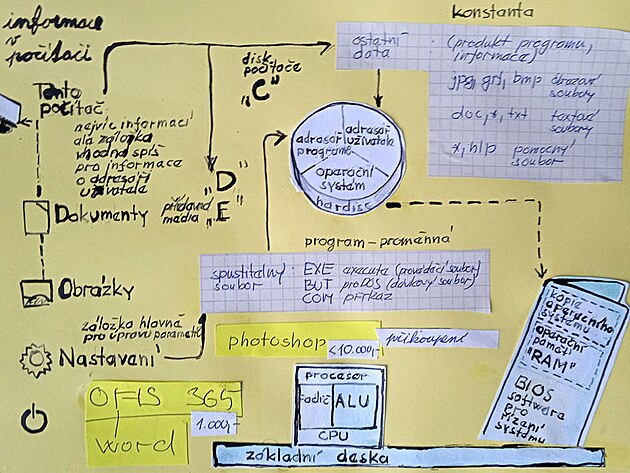 informace
v
počítači
Tento
počítač
nejvíc informací
ale záložka
vhodná spíš
pro informace
o adresáři
uživatele
Dokumenty
Obrázky
záložka hlavně
pro úpravu parametrů
Nastavaní
OFIS 365
1.000,-
word
disk
počítače
"C"
"D"
přídavná
media
"E"
konstanta
ostatní : (produkt programu,
data informace)
jpg, grf, bmp obrazové
soubory
doc, x, txt textové
soubory
x, hlp pomocný
soubor
adresář
uživatele
adresář
programě
oparační
systém
hardisc
program - proměnná
spustitelný : EXE executa (prováděcí soubor)
soubor BUT pro DOS (dávkový soubor)
COM příkaz
photoshop
<10.000,-
přikoupení
procesor
řadič
ALU
CPU
základní deska
kopie
operačního
systému
oparační
paměť
"RAM"
BIOS
software
pro
řízení
systému